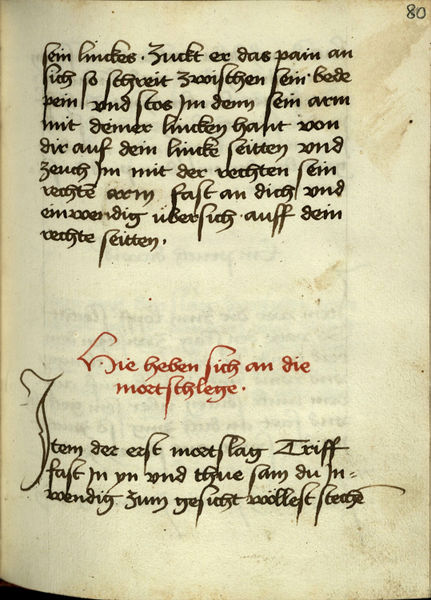 80
sein linckes. Zuckt er das pain an
sich so schreit zwischen sein bede
pein vnd stos Im denn sein arm
mit deiner lincken hant von
dir auf dein lincke seitten vnd
zeuch Im mit der rechten sein
rechtē arm fast an dich vnd
einwendig übersich auff dein
rechte seitten.
Hie heben sich an die
mortschlege.
Item der erst mortslag Triff
fast In yn vnd thue sam du In=
wendig zum gesicht wöllest stechē